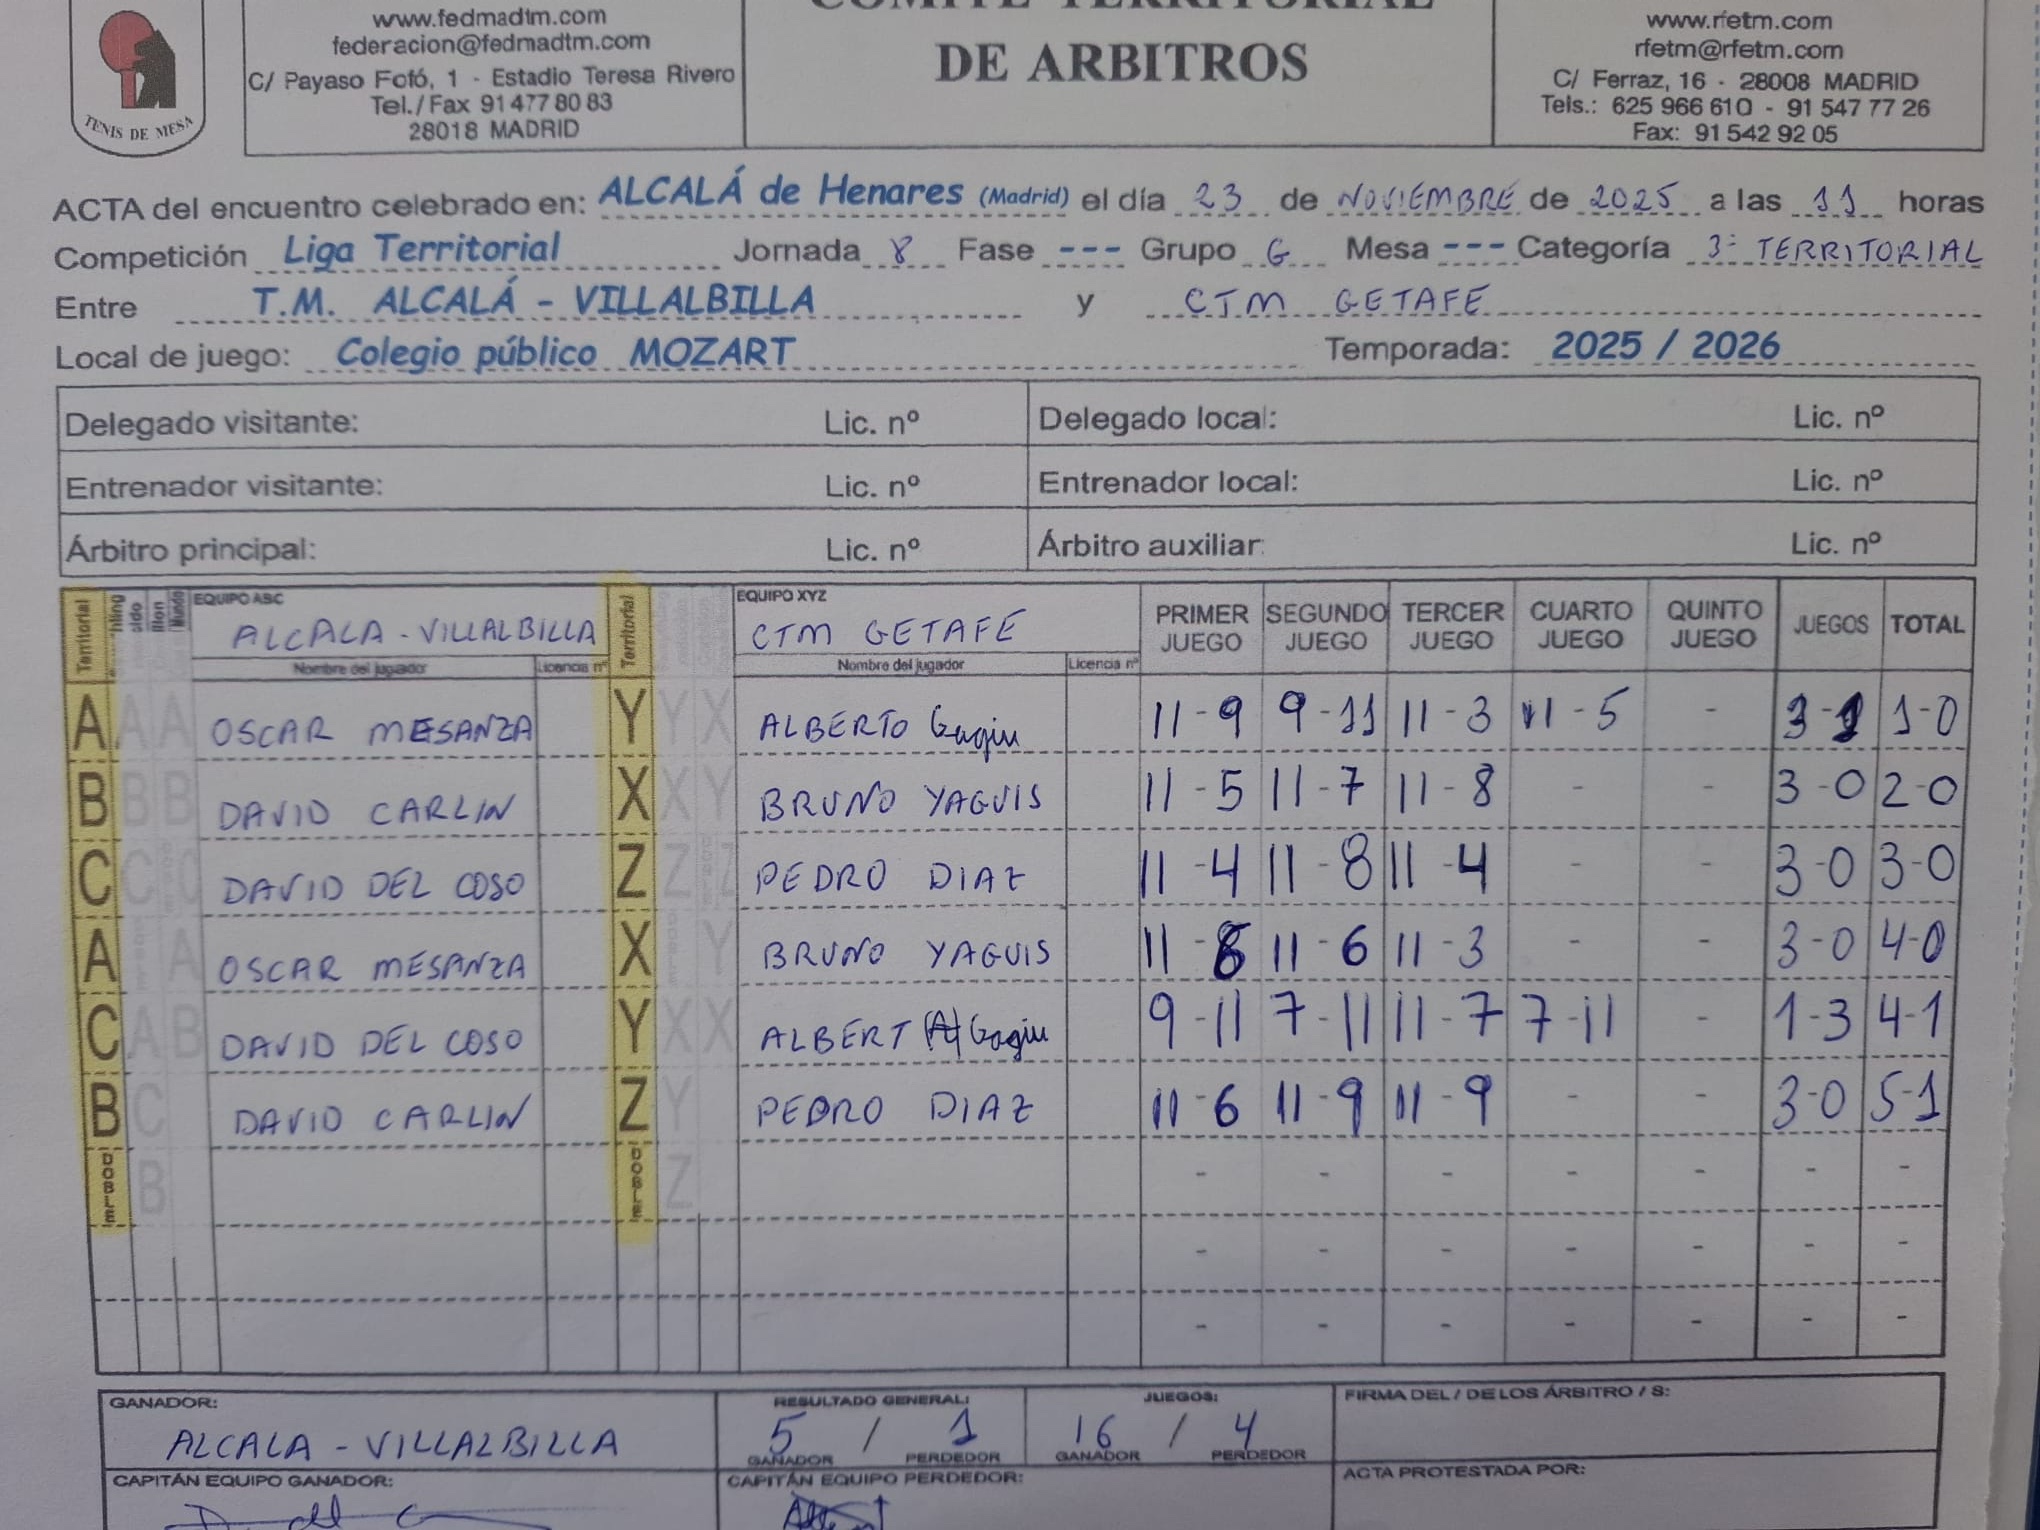 www.fedmadtm.com
federacion@fedmadtm.com
C/ Payaso Fofó, 1 - Estadio Teresa Rivero
Tel./Fax 91 477 80 83
28018 MADRID
TENIS DE MESA
COMITÉ TERRITORIAL
DE ARBITROS
www.rfetm.com
rfetm@rfetm.com
C/ Ferraz, 16 - 28008 MADRID
Tels.: 625 966 610 - 91 547 77 26
Fax: 91 542 92 05
ACTA del encuentro celebrado en: ALCALÁ de Henares (Madrid) el día 23 de NOVIEMBRE de 2025 a las 11 horas
Competición Liga Territorial Jornada 8 Fase --- Grupo G Mesa --- Categoría 3ª TERRITORIAL
Entre T.M. ALCALÁ - VILLALBILLA y CTM GETAFE
Local de juego: Colegio público MOZART Temporada: 2025 / 2026
Delegado visitante: Lic. nº Delegado local: Lic. nº
Entrenador visitante: Lic. nº Entrenador local: Lic. nº
Árbitro principal: Lic. nº Árbitro auxiliar: Lic. nº
Territorial EQUIPO ABC ALCALA - VILLALBILLA Territorial EQUIPO XYZ CTM GETAFE PRIMER JUEGO SEGUNDO JUEGO TERCER JUEGO CUARTO JUEGO QUINTO JUEGO JUEGOS TOTAL
Nombre del jugador Licencia nº Nombre del jugador Licencia nº
A OSCAR MESANZA Y ALBERTO Gagiu 11 - 9 9 - 11 11 - 3 11 - 5 - 3 - 1 1 - 0
B DAVID CARLIN X BRUNO YAGUIS 11 - 5 11 - 7 11 - 8 - - 3 - 0 2 - 0
C DAVID DEL COSO Z PEDRO DIAZ 11 - 4 11 - 8 11 - 4 - - 3 - 0 3 - 0
A OSCAR MESANZA X BRUNO YAGUIS 11 - 8 11 - 6 11 - 3 - - 3 - 0 4 - 0
C DAVID DEL COSO Y ALBERT (A) Gagiu 9 - 11 7 - 11 11 - 7 7 - 11 - 1 - 3 4 - 1
B DAVID CARLIN Z PEDRO DIAZ 11 - 6 11 - 9 11 - 9 - - 3 - 0 5 - 1
DOBLE DOBLE - - - - - - -
- - - - - - -
- - - - - - -
GANADOR: ALCALA - VILLALBILLA RESULTADO GENERAL: 5 / 1 GANADOR PERDEDOR JUEGOS: 16 / 4 GANADOR PERDEDOR FIRMA DEL / DE LOS ÁRBITRO / S:
CAPITÁN EQUIPO GANADOR: CAPITÁN EQUIPO PERDEDOR: ACTA PROTESTADA POR: